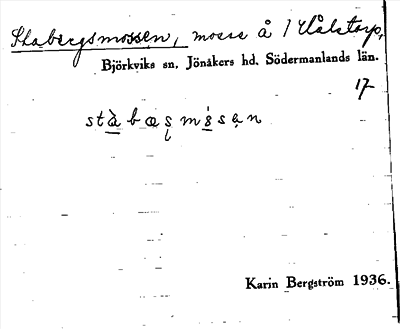 Stabergsmossen, mosse å 1 Hålstorp,
Björkviks sn, Jönåkers hd, Södermanlands län.
17
stàbœsmòsen
Karin Bergström 1936.